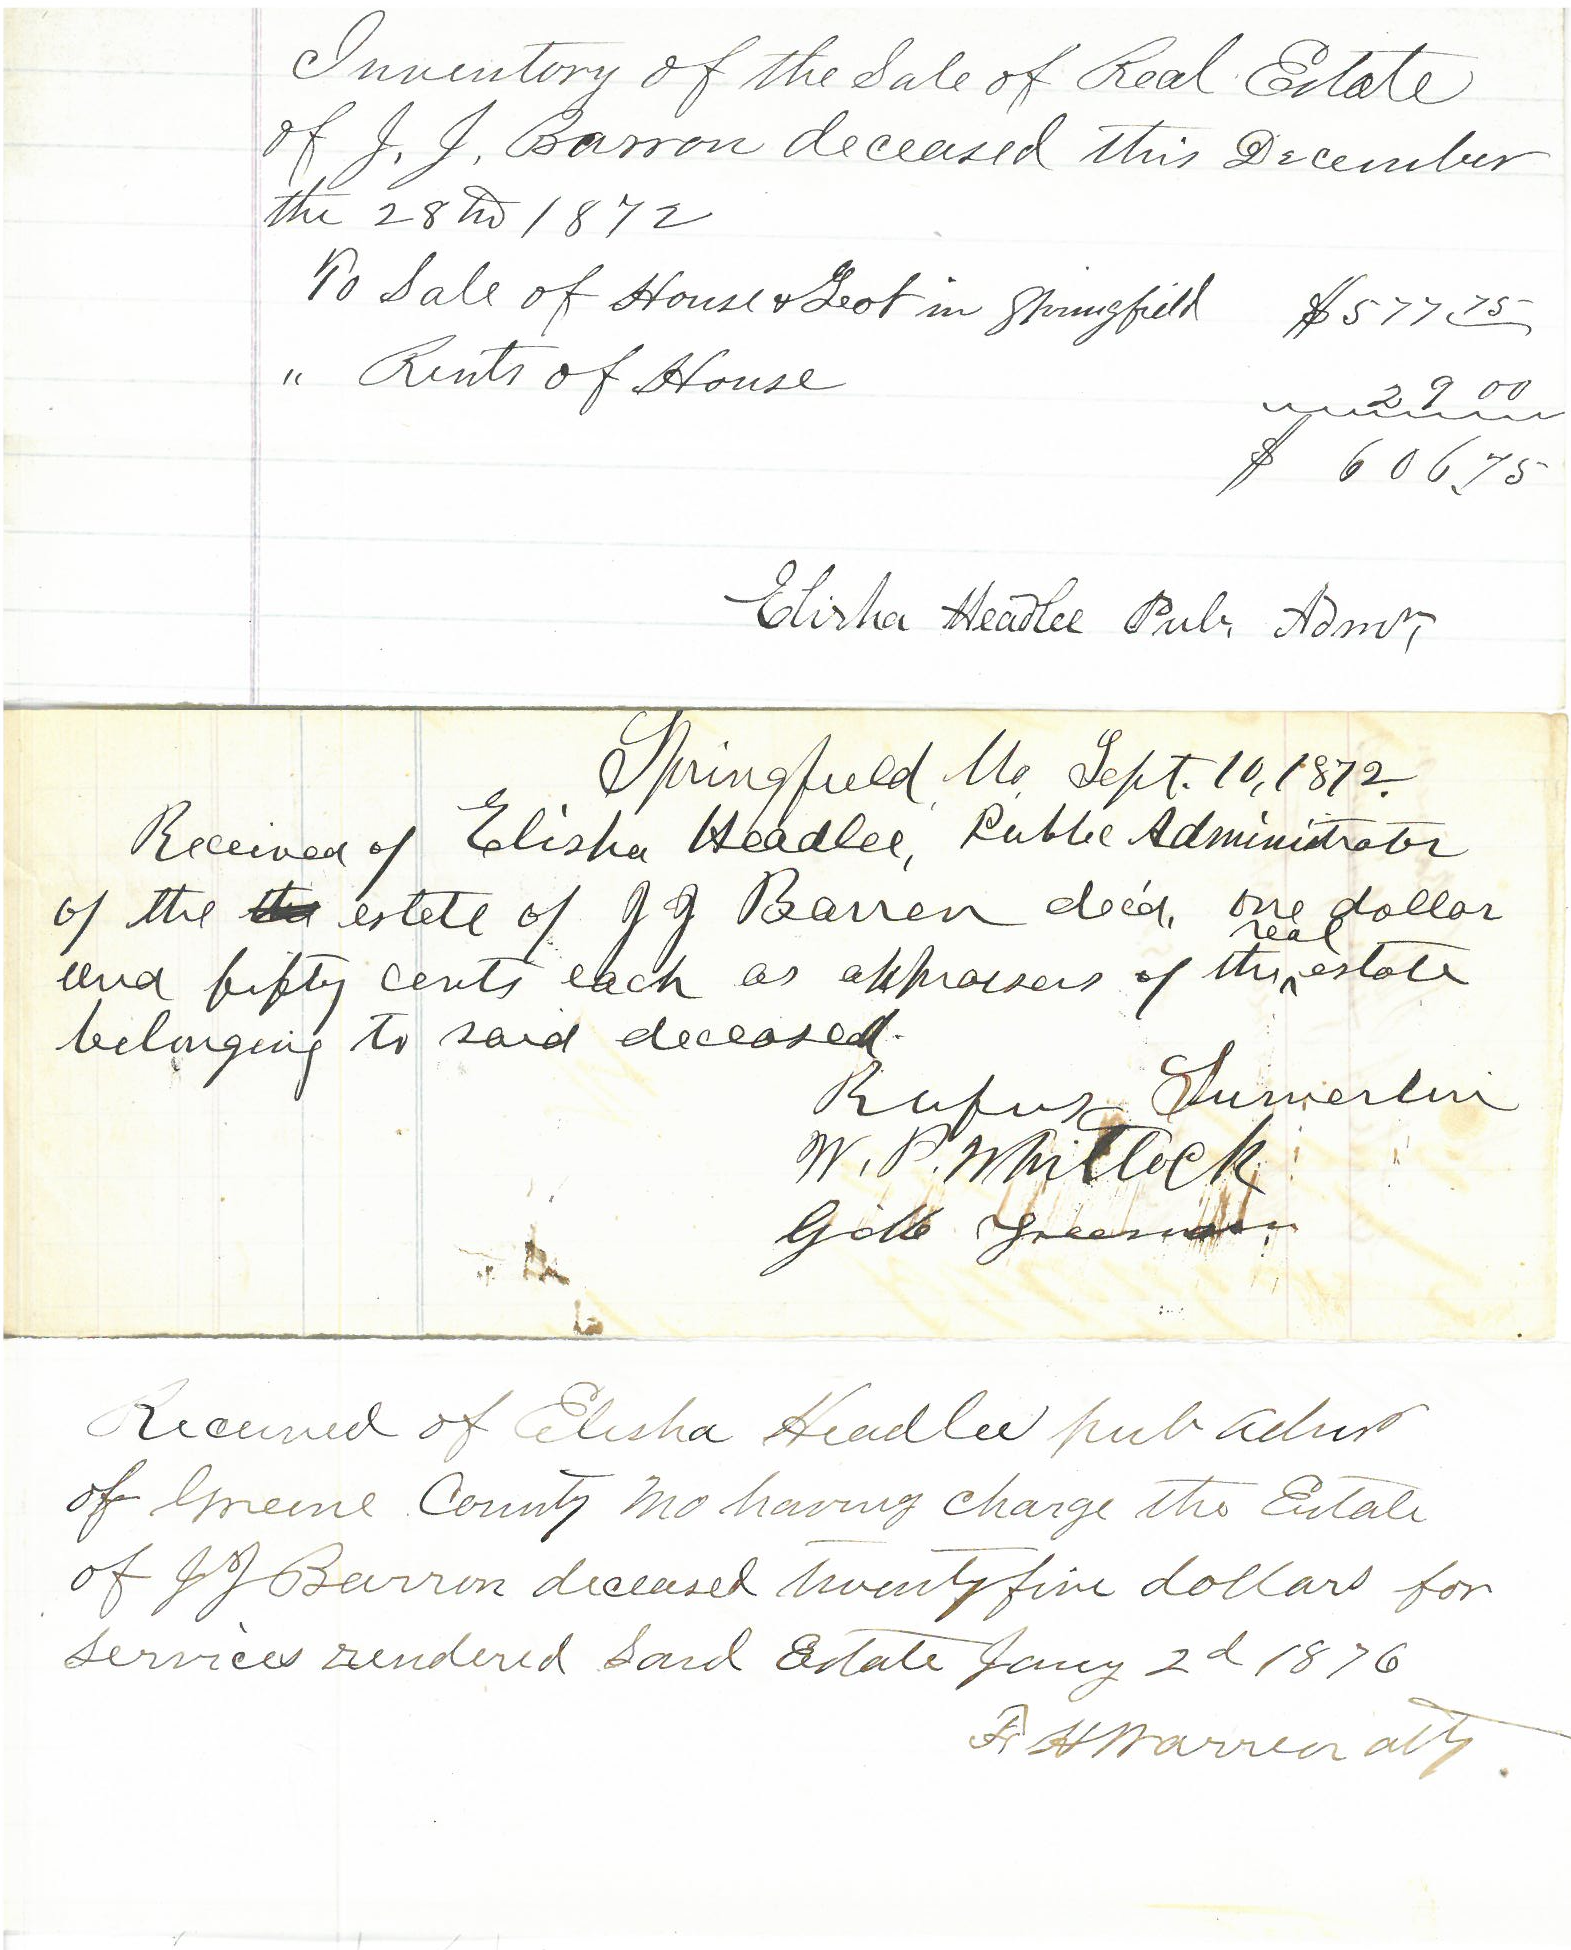 Inventory of the Sale of Real Estate
of J. J. Barron deceased this December
the 28th 1872
To Sale of House & Lot in Springfield $577.75
" Rents of House 29 00
$ 606.75
Elisha Headlee Pub. Admr,
Springfield, Mo, Sept. 10, 1872.
Received of Elisha Headlee, Public Administrator
of the estate of J J Barren dec'd, one dollar
real
and fifty cents each as appraisers of the estate
belonging to said deceased.
Rufus
W. P. Whitlock
Received of Elisha Headlee pub admr
of Greene County Mo having charge the Estate
of J J Barron deceased twenty five dollars for
services rendered said Estate Jany 2d 1876
F H Warren atty.